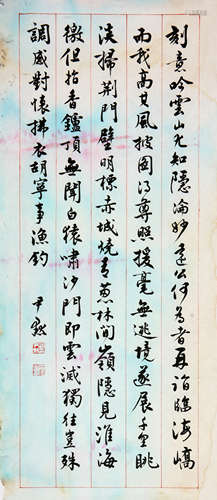 刻意吟雲山尤知隱淪妙遠公何為者再詣臨海嶠
而我高其風披圖得尊照援毫無逃境遂展千里眺
淡掃荆門壁明標赤城燒青葱林間嶺隱見淮海
徼但指香鑪頂無聞白猿嘯沙門即雲滅獨往豈殊
調感對懷拂衣胡寧事漁釣
尹默